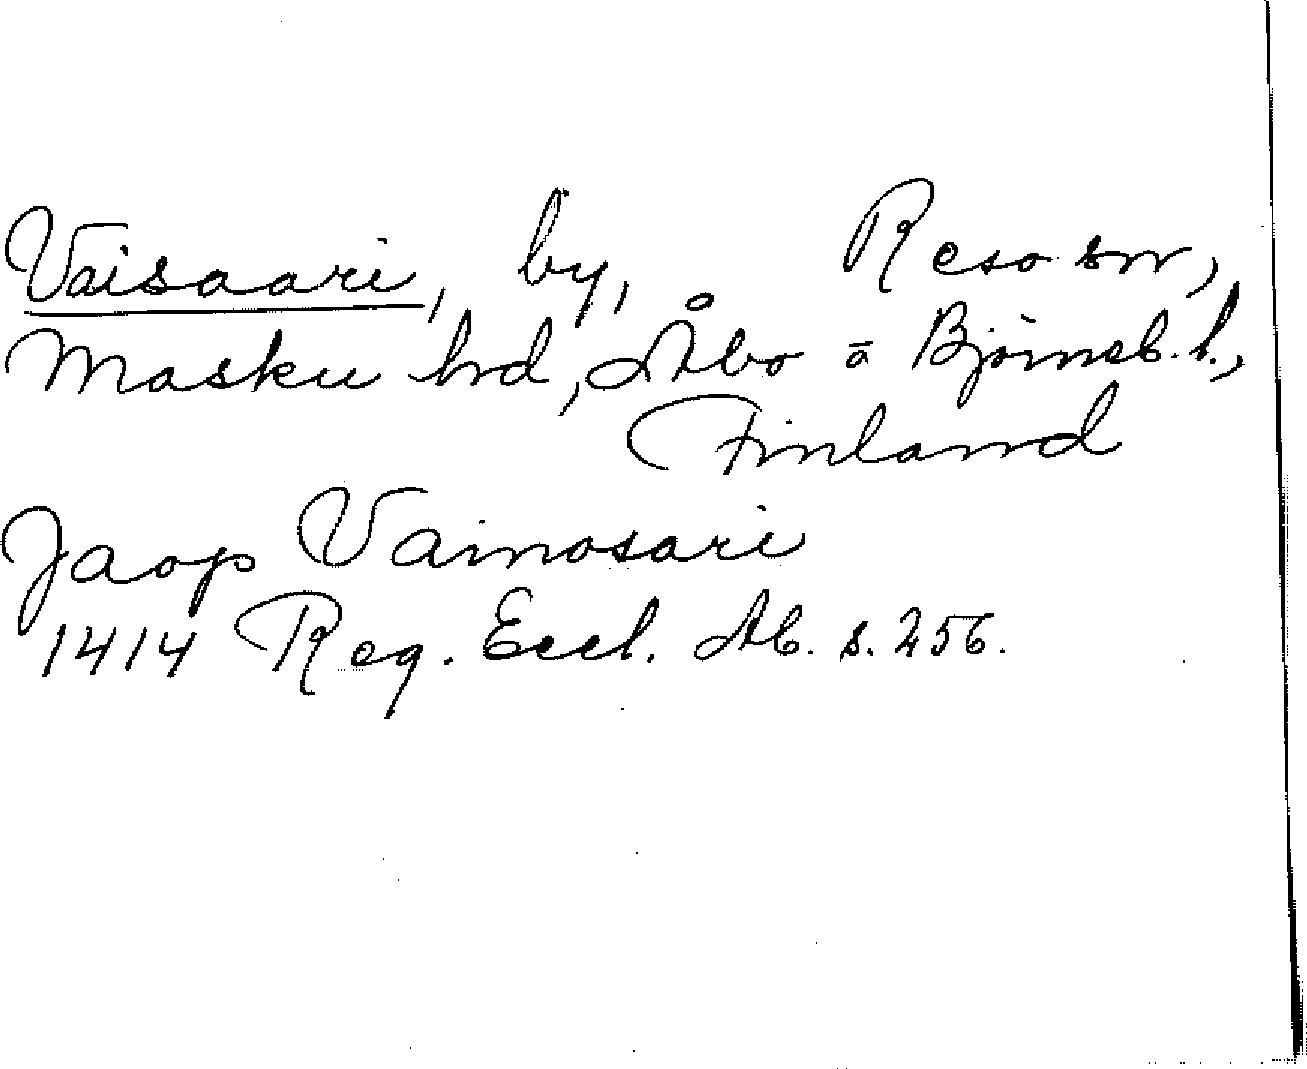 Vaisaari, by, Reso sn,
Masku hd, Åbo o Björneb. l.,
Finland
Jaop Vainosari
1414 Reg. Eccl. Ab. s. 256.